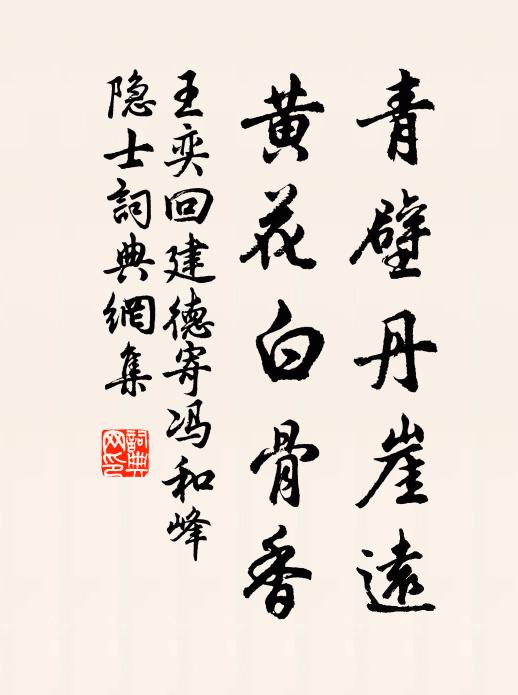 青壁丹崖遠
黄花白骨香
王奕回建德寄冯和峰
隐士詞典網集
詞典网印